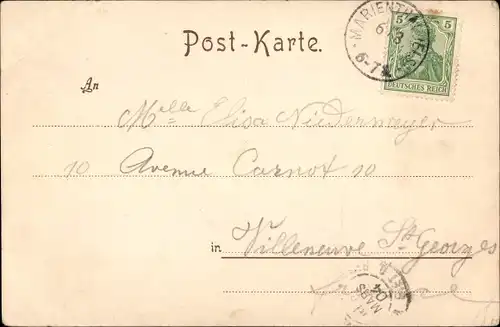 Post-Karte.
MARIENTHAL (ELS)
6 3
6-7N.
5 5
DEUTSCHES REICH
An
Melle Elisa Niedermeyer
10 Avenue Carnot 10
in Villeneuve St. Georges
France
MARS
04